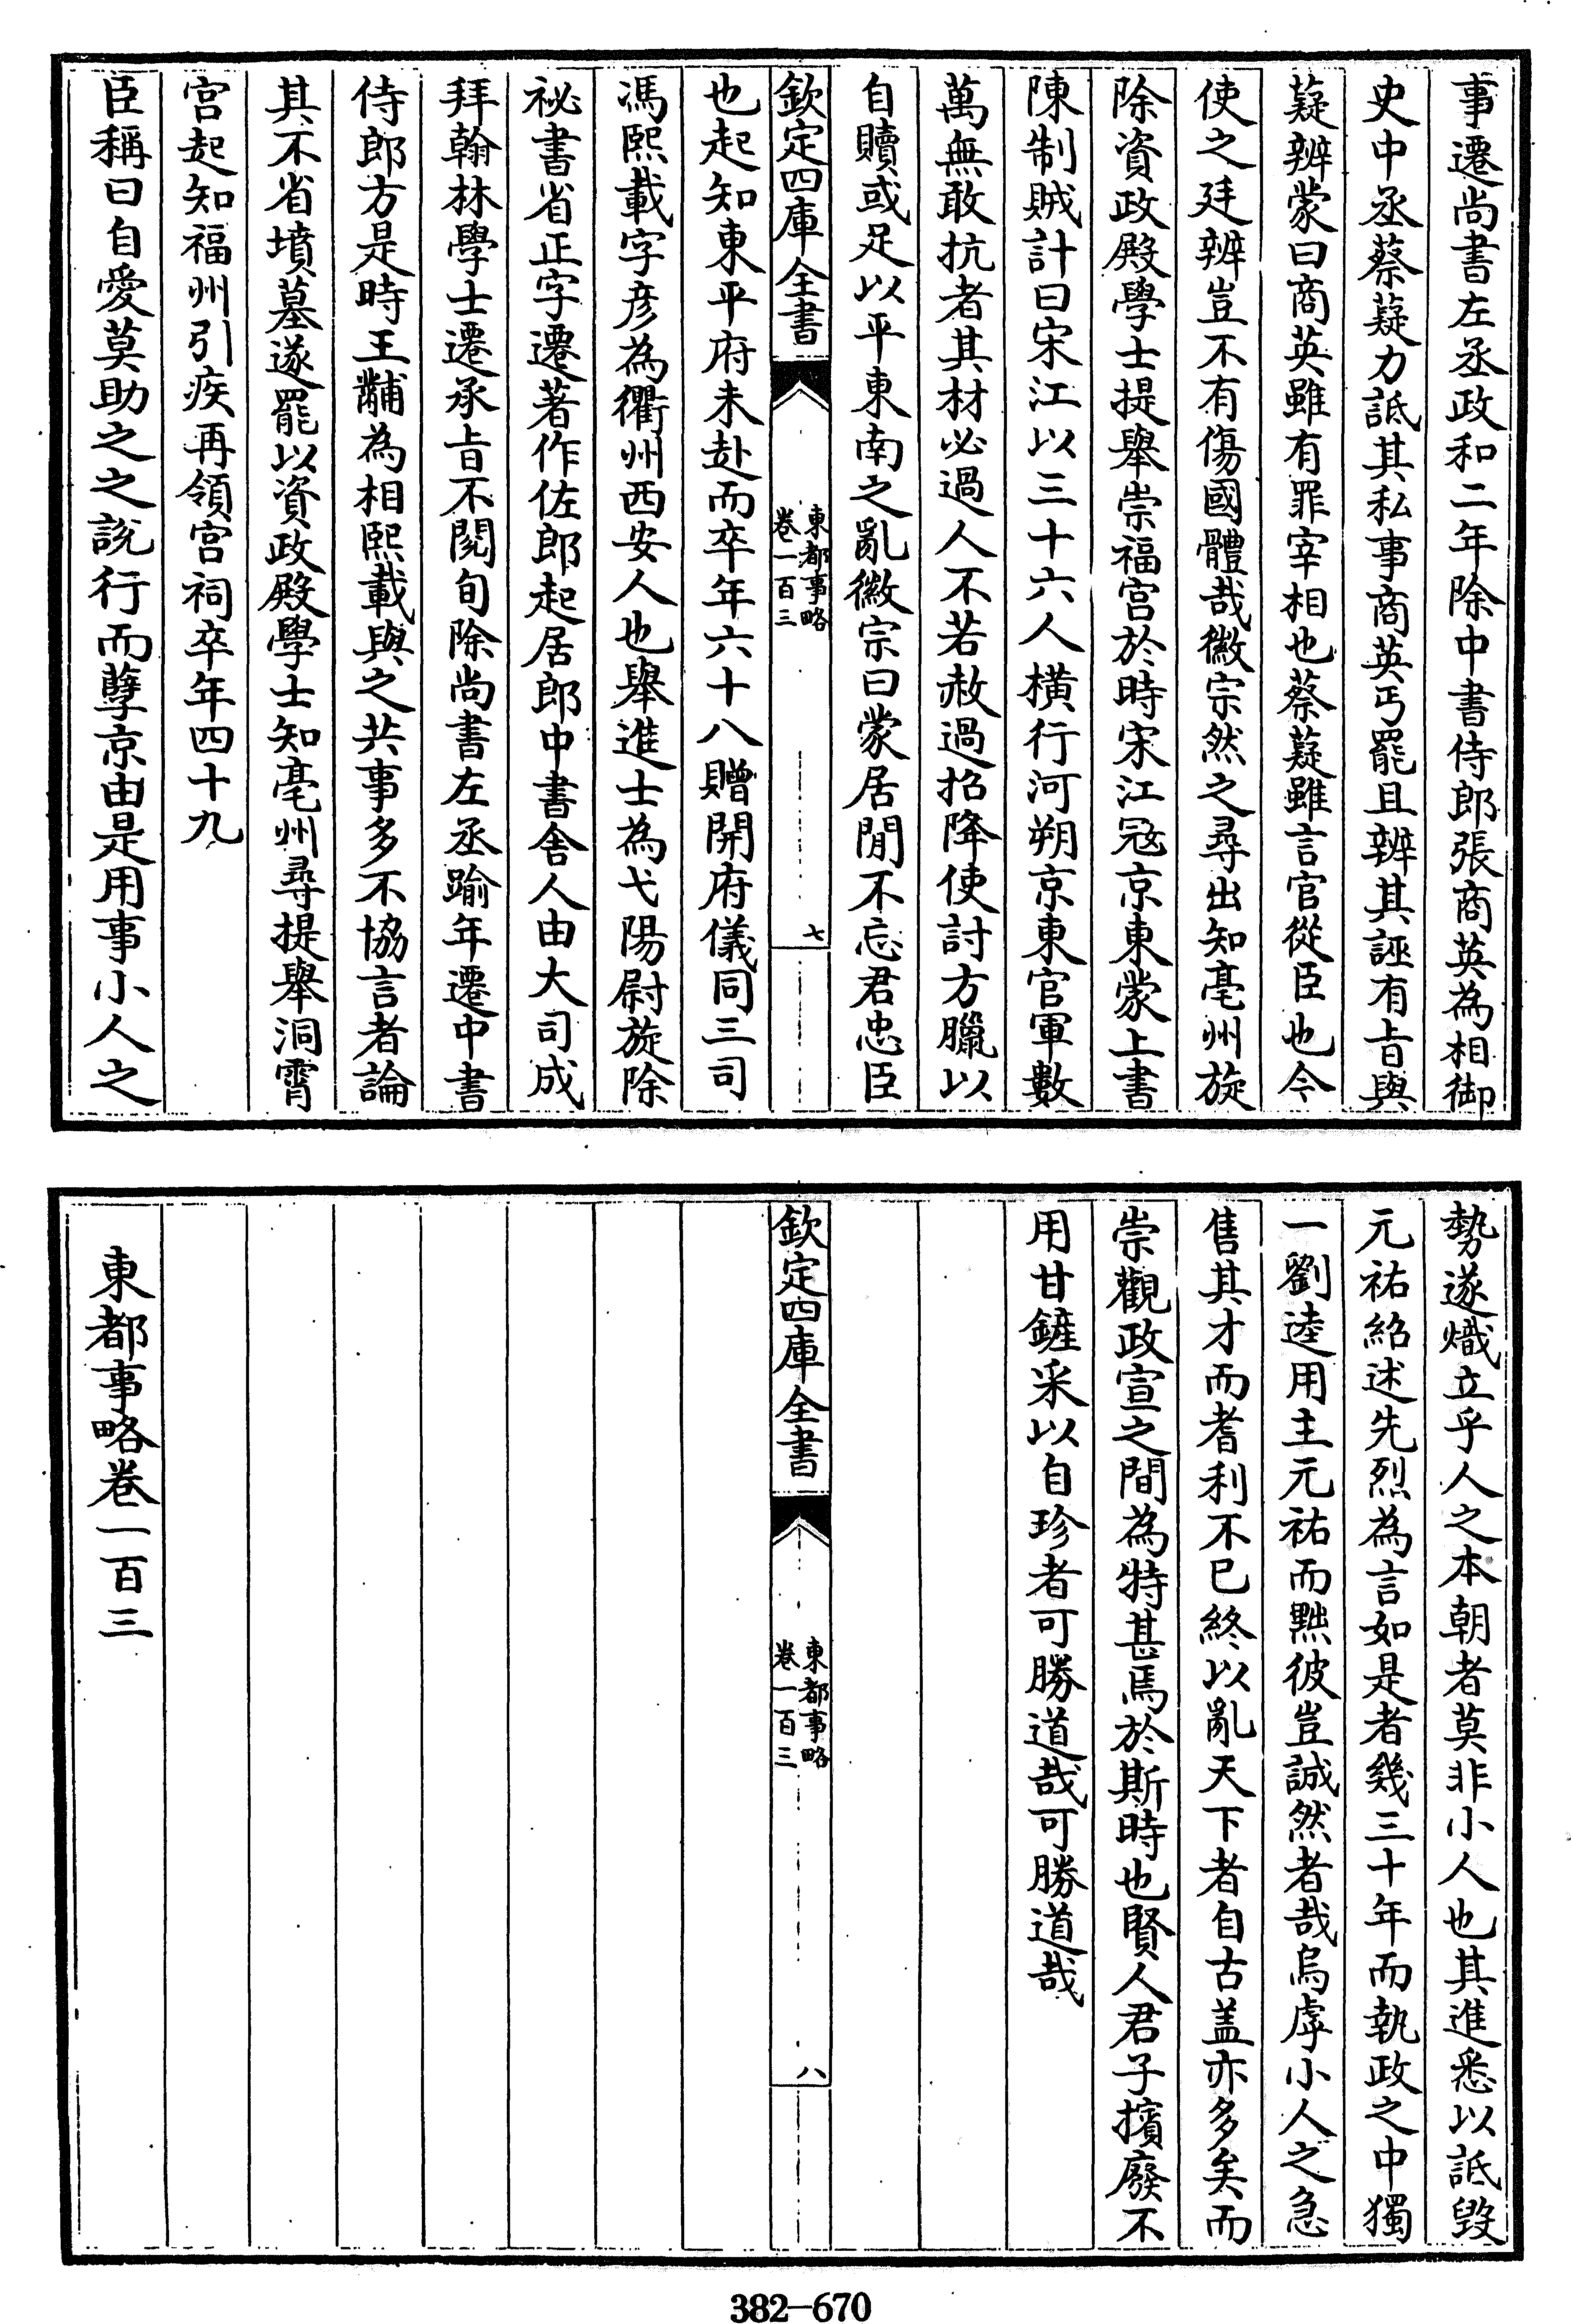 事遷尚書左丞政和二年除中書侍郎張商英為相御
史中丞蔡薿力詆其私事商英丐罷且辨其誣有旨與
薿辨蒙曰商英雖有罪宰相也蔡薿雖言官從臣也今
使之廷辨豈不有傷國體哉徽宗然之尋出知亳州旋
除資政殿學士提舉崇福宮於時宋江冦京東蒙上書
陳制賊計曰宋江以三十六人橫行河朔京東官軍數
萬無敢抗者其材必過人不若赦過招降使討方臘以
自贖或足以平東南之亂徽宗曰蒙居閒不忘君忠臣
欽定四庫全書
東都事略
卷一百三
七
也起知東平府未赴而卒年六十八贈開府儀同三司
馮熙載字彥為衢州西安人也舉進士為弋陽尉旋除
祕書省正字遷著作佐郎起居郎中書舍人由大司成
拜翰林學士遷承旨不閱旬除尚書左丞踰年遷中書
侍郎方是時王黼為相熙載與之共事多不協言者論
其不省墳墓遂罷以資政殿學士知亳州尋提舉洞霄
宮起知福州引疾再領宮祠卒年四十九
臣稱曰自愛莫助之之說行而孽京由是用事小人之
勢遂熾立乎人之本朝者莫非小人也其進悉以詆毀
元祐紹述先烈為言如是者幾三十年而執政之中獨
一劉逵用主元祐而黜彼豈誠然者哉烏虖小人之急
售其才而耆利不已終以亂天下者自古蓋亦多矣而
崇觀政宣之間為特甚焉於斯時也賢人君子擯廢不
用甘鏟采以自珍者可勝道哉可勝道哉
欽定四庫全書
東都事略
卷一百三
八
東都事略卷一百三
382—670